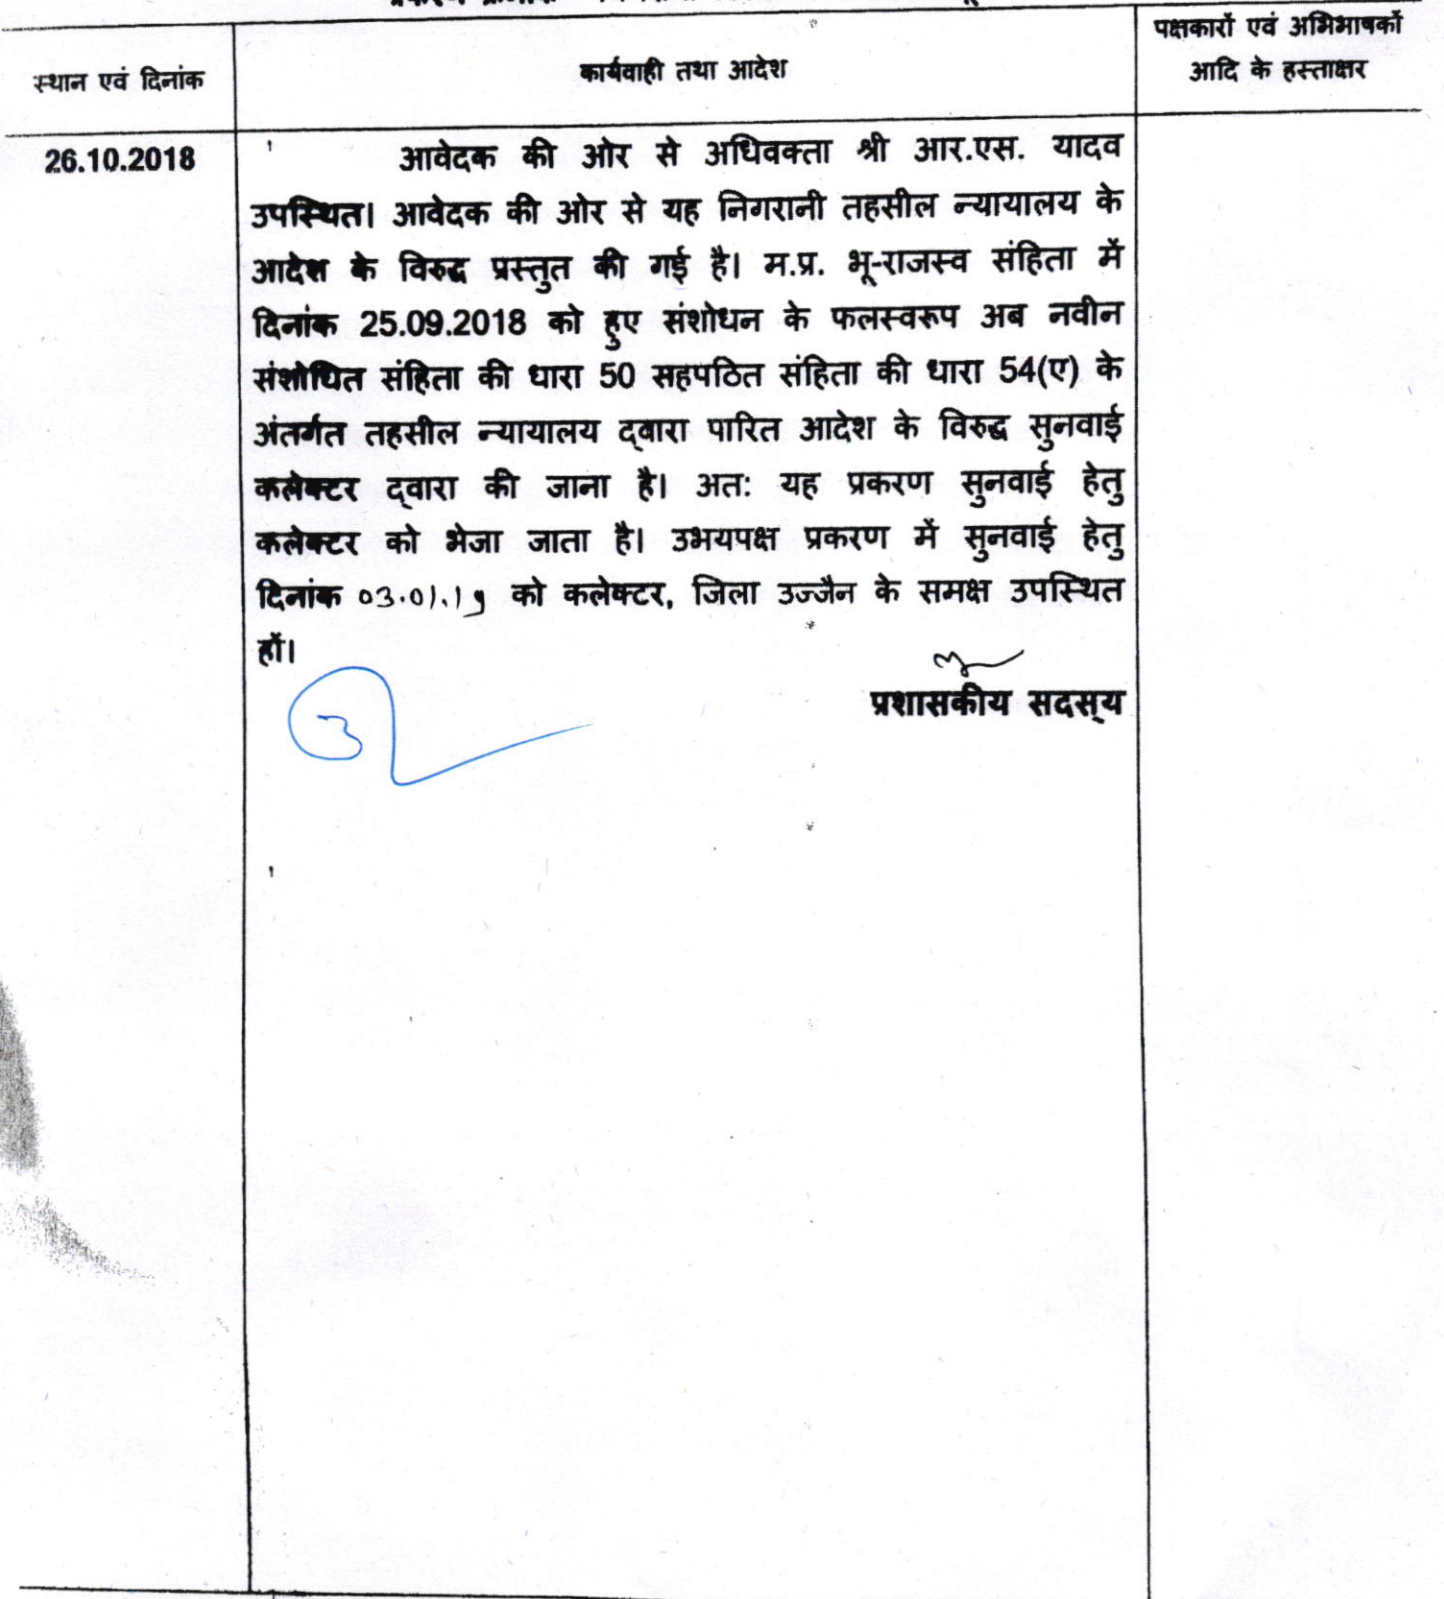 पक्षकारों एवं अभिभाषकों
आदि के हस्ताक्षर
स्थान एवं दिनांक
कार्यवाही तथा आदेश
26.10.2018
आवेदक की ओर से अधिवक्ता श्री आर.एस. यादव
उपस्थित। आवेदक की ओर से यह निगरानी तहसील न्यायालय के
आदेश के विरुद्ध प्रस्तुत की गई है। म.प्र. भू-राजस्व संहिता में
दिनांक 25.09.2018 को हुए संशोधन के फलस्वरूप अब नवीन
संशोधित संहिता की धारा 50 सहपठित संहिता की धारा 54(ए) के
अंतर्गत तहसील न्यायालय द्वारा पारित आदेश के विरुद्ध सुनवाई
कलेक्टर द्वारा की जाना है। अतः यह प्रकरण सुनवाई हेतु
कलेक्टर को भेजा जाता है। उभयपक्ष प्रकरण में सुनवाई हेतु
दिनांक 03.01.19 को कलेक्टर, जिला उज्जैन के समक्ष उपस्थित
हों।
प्रशासकीय सदस्य